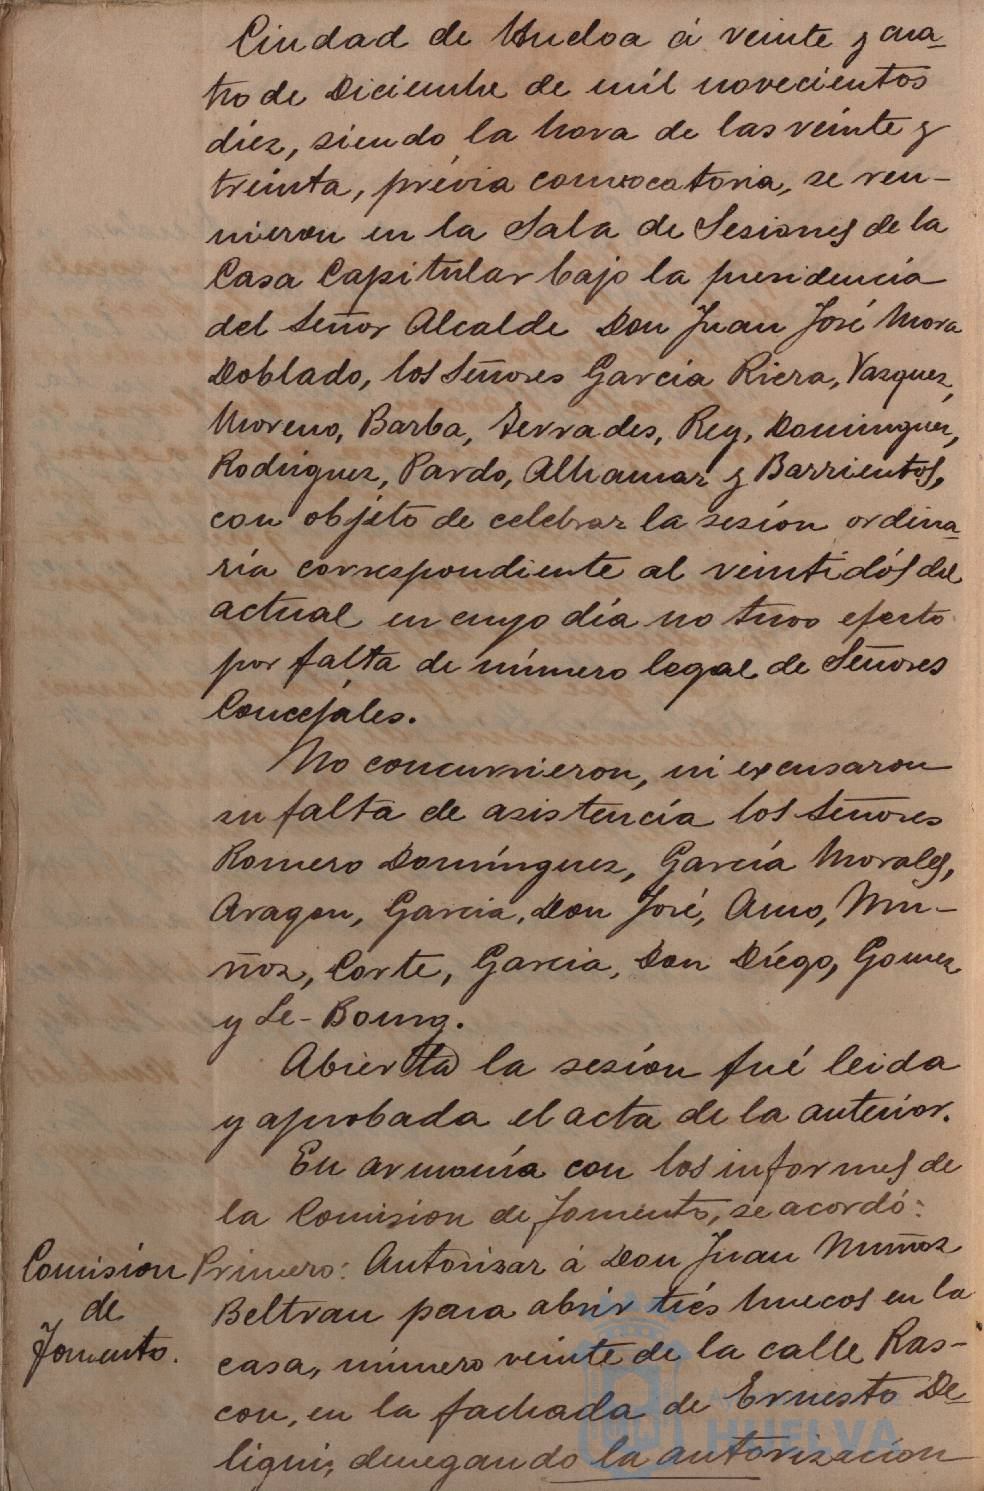 Ciudad de Huelva á veinte y cua-
tro de Diciembre de mil novecientos
diez, siendo la hora de las veinte y
treinta, prévia convocatoria, se reu-
nieron en la Sala de Sesiones de la
Casa Capitular bajo la presidencia
del Señor Alcalde Don Juan José Mora
Doblado, los Señores García Riera, Vazquez,
Moreno, Barba, Terrades, Rey, Dominguez,
Rodriguez, Pardo, Alhamar y Barrientos,
con objeto de celebrar la sesión ordina-
ria correspondiente al veintidós del
actual en cuyo día no tuvo efecto
por falta de número legal de Señores
Concejales.
No concurrieron, ni excusaron
su falta de asistencia los Señores
Romero Domínguez, García Morales,
Aragon, Garcia, Don José, Amo, Mu-
ñoz, Corte, Garcia, Don Diégo, Gomez
y Le-Bourg.
Abierta la sesión fué leida
y aprobada el acta de la anterior.
En armonía con los informes de
la Comision de Fomento, se acordó:
Comisión
de
Fomento.
Primero: Autorizar á Don Juan Muñoz
Beltran para abrir trés huecos en la
casa, número veinte de la calle Ras-
con, en la fachada de Ernesto De-
ligni; denegando la autorización
HUELVA